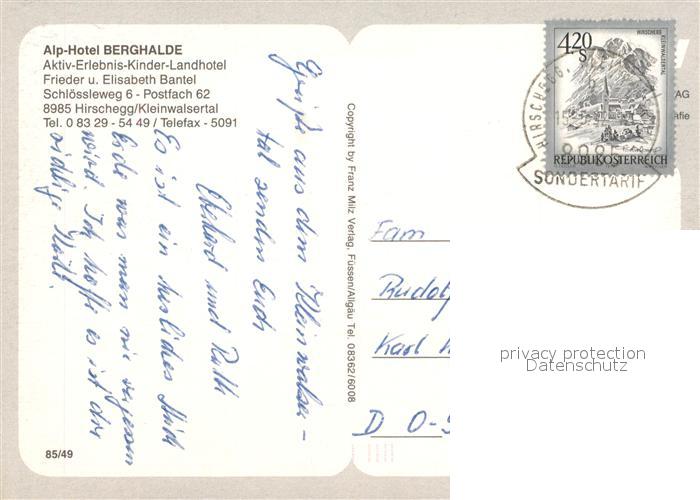 Alp-Hotel BERGHALDE
Aktiv-Erlebnis-Kinder-Landhotel
Frieder u. Elisabeth Bantel
Schlössleweg 6 - Postfach 62
8985 Hirschegg/Kleinwalsertal
Tel. 0 83 29 - 54 49 / Telefax - 5091
Grüße aus dem Kleinwalser-
tal senden Euch
Ekehard und Ruth
Es ist ein herrliches Stück
Erde was man nie vergessen
wird. Ich hoffe es ist die
richtige
85/49
Copyright by Franz Milz Verlag, Füssen/Allgäu Tel. 08362/6008
HIRSCHEGG
KLEINWALSERTAL
4.20
S
REPUBLIK ÖSTERREICH
HIRSCHEGG,
SONDERTARIF
TAG
afie
Fam
Rudol
Karl
D O-
privacy protection
Datenschutz